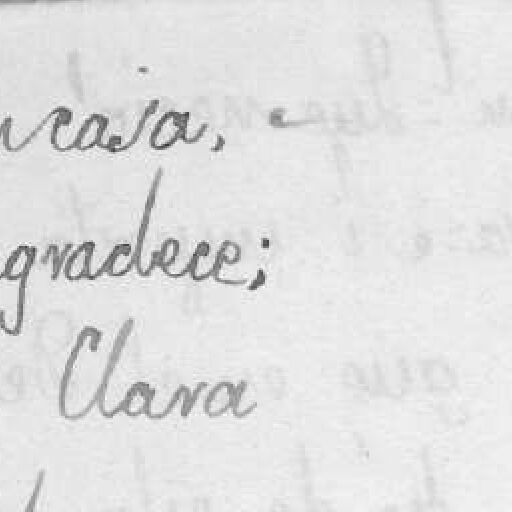 casa,
gradece;
Clara